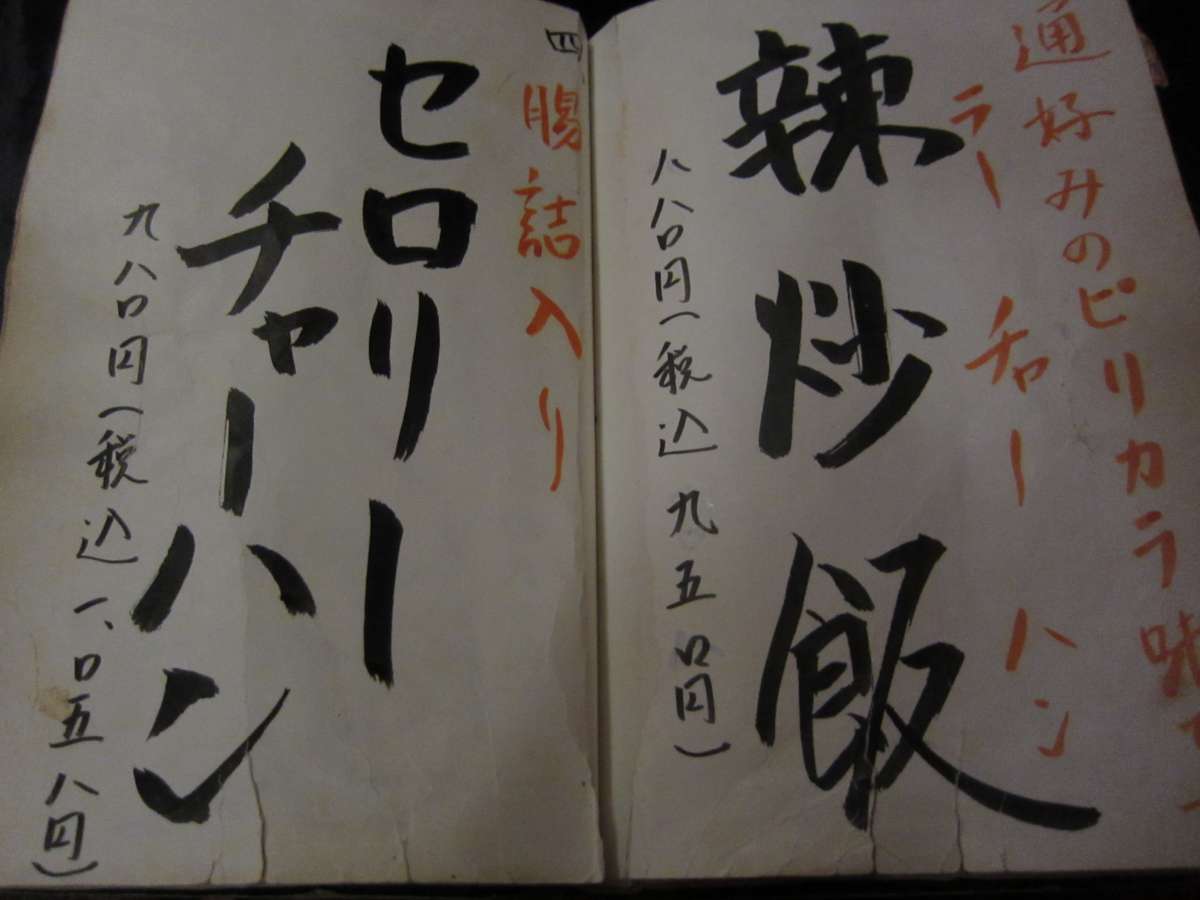 通好みのピリカラ味
ラーチャーハン
辣炒飯
八八〇円(税込九五〇円)
四
腸詰入り
セロリー
チャーハン
九八〇円(税込一、〇五八円)